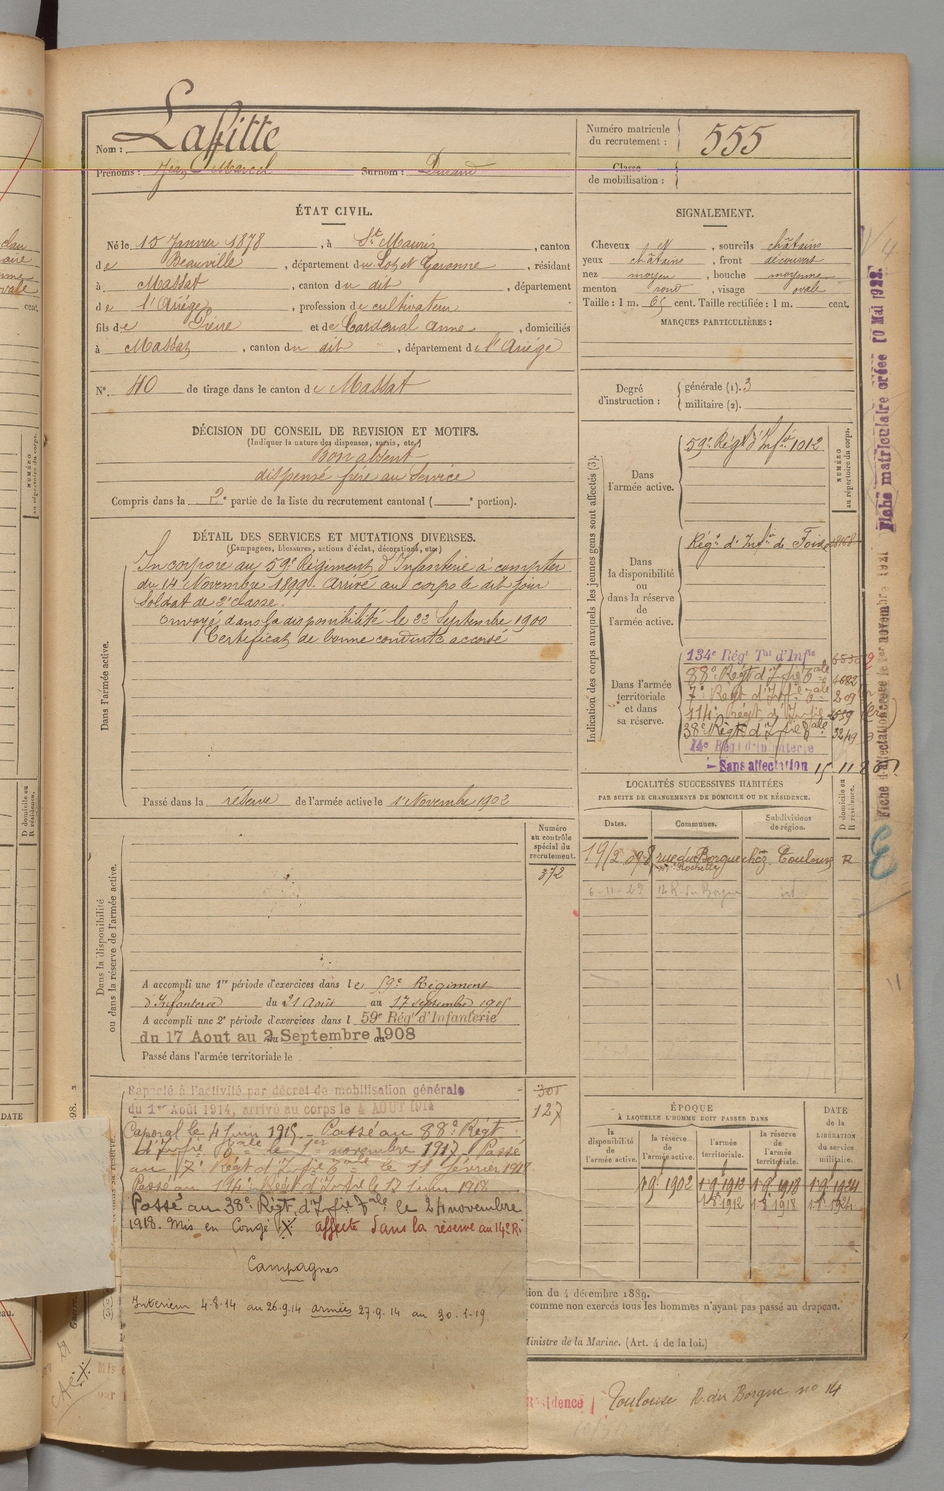 Lafitte
Nom :
Prénoms : Jean Marcel Surnom : Durand
Numéro matricule du recrutement : 555
Classe de mobilisation :
ÉTAT CIVIL.
Né le 15 Janvier 1878, à St Maurin, canton
de Beauville, département du Lot et Garonne, résidant
à Massat, canton du dit, département
de l'Ariège, profession de cultivateur
fils de Pierre et de Cardenal Anne, domiciliés
à Massat, canton du dit, département de l'Ariège
N° 40 de tirage dans le canton de Massat
SIGNALEMENT.
Cheveux , sourcils châtains
yeux châtains, front découvert
nez moyen, bouche moyenne
menton rond, visage ovale
Taille : 1 m. 65 cent. Taille rectifiée : 1 m. cent.
MARQUES PARTICULIÈRES :
Degré d'instruction : générale (1). 3
militaire (2).
DÉCISION DU CONSEIL DE REVISION ET MOTIFS.
(Indiquer la nature des dispenses, sursis, etc.)
Bon absent
dispensé frère au service
Compris dans la 2e partie de la liste du recrutement cantonal ( e portion).
DÉTAIL DES SERVICES ET MUTATIONS DIVERSES.
(Campagnes, blessures, actions d'éclat, décorations, etc.)
Dans l'armée active.
Incorporé au 59e Régiment d'Infanterie à compter
du 14 Novembre 1899. Arrivé au corps le dit jour
Soldat de 2e classe.
Envoyé dans la disponibilité le 22 Septembre 1900
Certificat de bonne conduite accordé
Passé dans la réserve de l'armée active le 1er Novembre 1902
Indication des corps auxquels les jeunes gens sont affectés (3).
NUMÉRO au répertoire du corps.
Dans l'armée active.
59e Régt d'Infie 1012
Dans la disponibilité ou dans la réserve de l'armée active.
Régt d'Infie de Foix
Dans l'armée territoriale et dans sa réserve.
134e Régt Tal d'Infie
88e Régt d'Ifrie 4682
7e Régt d'Ifrie 209
114e Régt d'Ifrie
38e Régt d'Ifrie 3249
14e Régt d'Infanterie
Sans affectation 15.11.26
LOCALITÉS SUCCESSIVES HABITÉES
PAR SUITE DE CHANGEMENTS DE DOMICILE OU DE RÉSIDENCE.
Dates. Communes. Subdivisions de région. D domicile ou R résidence.
19/2 rue du Borgne chez Toulouse R
6-11-29 12 R. du Borgne
Dans la disponibilité ou dans la réserve de l'armée active.
Numéro au contrôle spécial du recrutement.
372
A accompli une 1re période d'exercices dans le 59e Régiment
d'Infanterie du 21 Août au 17 septembre 1905
A accompli une 2e période d'exercices dans l 59e Rég d'Infanterie
du 17 Aout au 2 Septembre 1908
Passé dans l'armée territoriale le
301
127
Rappelé à l'activité par décret de mobilisation générale
du 1er Août 1914, arrivé au corps le 4 AOUT 1914
Caporal le 4 Juin 1915 - Passé au 88e Régt
d'Ifrie le 1er novembre 1917. Passé
au 7e Régt d'Ifrie le 11 février 1918
Passé au 114e Régt d'Ifrie le 17 Juin 1918
Passé au 38e Régt d'Ifrie le 24 novembre
1918. Mis en Congé affecté dans la réserve au 14e R.
Campagnes
Intérieur 4.8.14 au 26.9.14 armées 27.9.14 au 30.1.19
ÉPOQUE
À LAQUELLE L'HOMME DOIT PASSER DANS
la disponibilité de l'armée active.
la réserve de l'armée active.
l'armée territoriale.
la réserve de l'armée territoriale.
DATE de la LIBÉRATION du service militaire.
1.9 1902 1.9 1912 1.9 1918 1.9 1924
1.8 1912 1.8 1918 1.8 1924
tion du 4 décembre 1889.
comme non exercés tous les hommes n'ayant pas passé au drapeau.
Ministre de la Marine. (Art. 4 de la loi.)
Résidence Toulouse R. du Borgne no 14
Fiche d'affectation novembre 1921
Fiche matriculaire créée 10 Mai 1922.